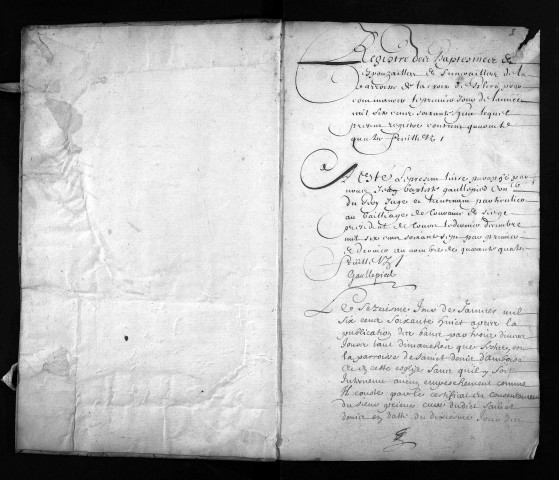 Registre des Baptesmes
Espouzailles & funerailles de la
parroisse de la croix de Blere pour
commancer le premier Jour de l'année
mil six cens soixante huict lequel
present registre contient quarante
quatre feuilletz /
A esté le present livre paraphé par
nous Jehan baptiste gaullepied Conser
du Roy Juge et lieutenant particulier
au bailliage de Touraine & siege
presidial de Tours le decembre
mil six cens soixante sept par premier
& dernier au nombre de quarante quatre
feuilletz /
Gaullepied
Le Seziesme Jour de Janvier mil
six cens soixante huict apres la
publication des bans par trois divers
Jours tant dimanches que festes en
la parroisse de sainct denis d'Amboise
& cette esglise sans quil y soit
Intervenu aucun empeschement comme
Il conste par le certificat & consentement
du sieur curé dudict sainct
denis en datte du Jour des